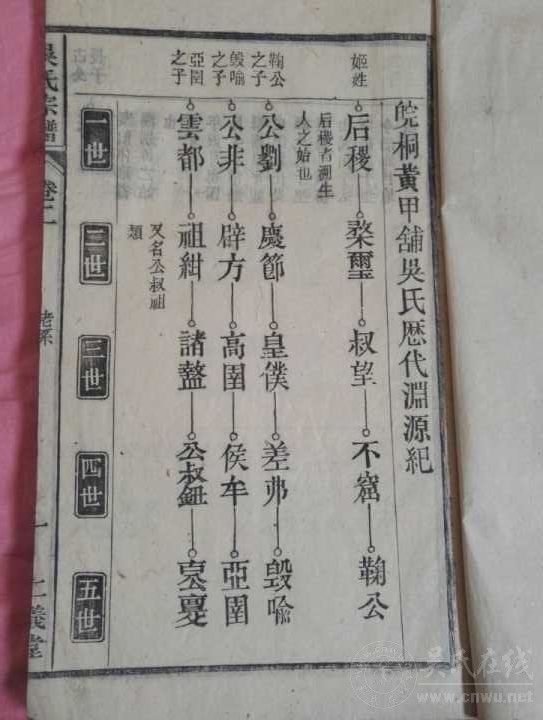 皖桐黃甲舖吳氏歷代淵源紀
姬姓
后稷
后稷者溯生
人之始也
棻璽
叔望
不窟
鞠公
鞠公
之子
公劉
慶節
皇僕
差弗
毀喻
毀喻
之子
公非
辟方
高圉
侯牟
亞圉
亞圉
之子
雲都
祖紺
又名公叔祖
類
諸盩
公叔鈕
一世
二世
三世
四世
五世
吳氏宗譜
卷二
老系
一
仁義堂
吳氏在线
www.cnwu.net